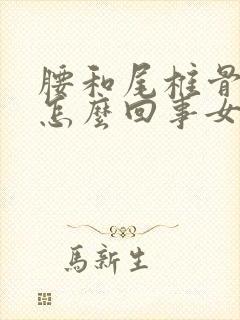 腰和尾柱骨
怎麼回事女
馬新生